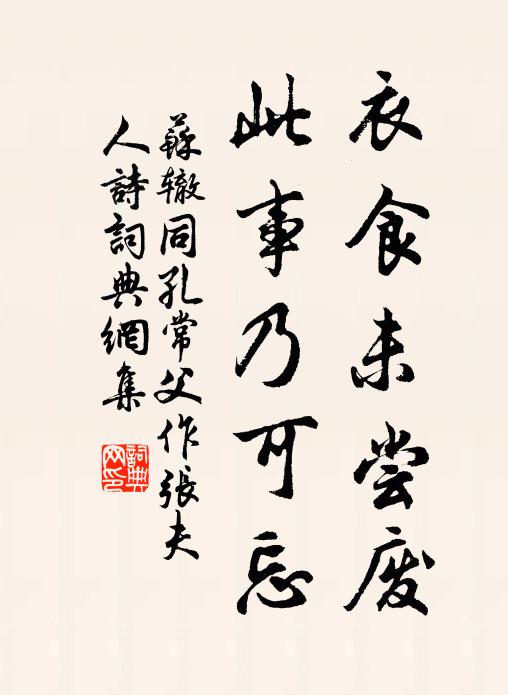 衣食未尝废
此事乃可忘
蘇辙同孔常父作張夫
人詩詞典網集
詞典
网印